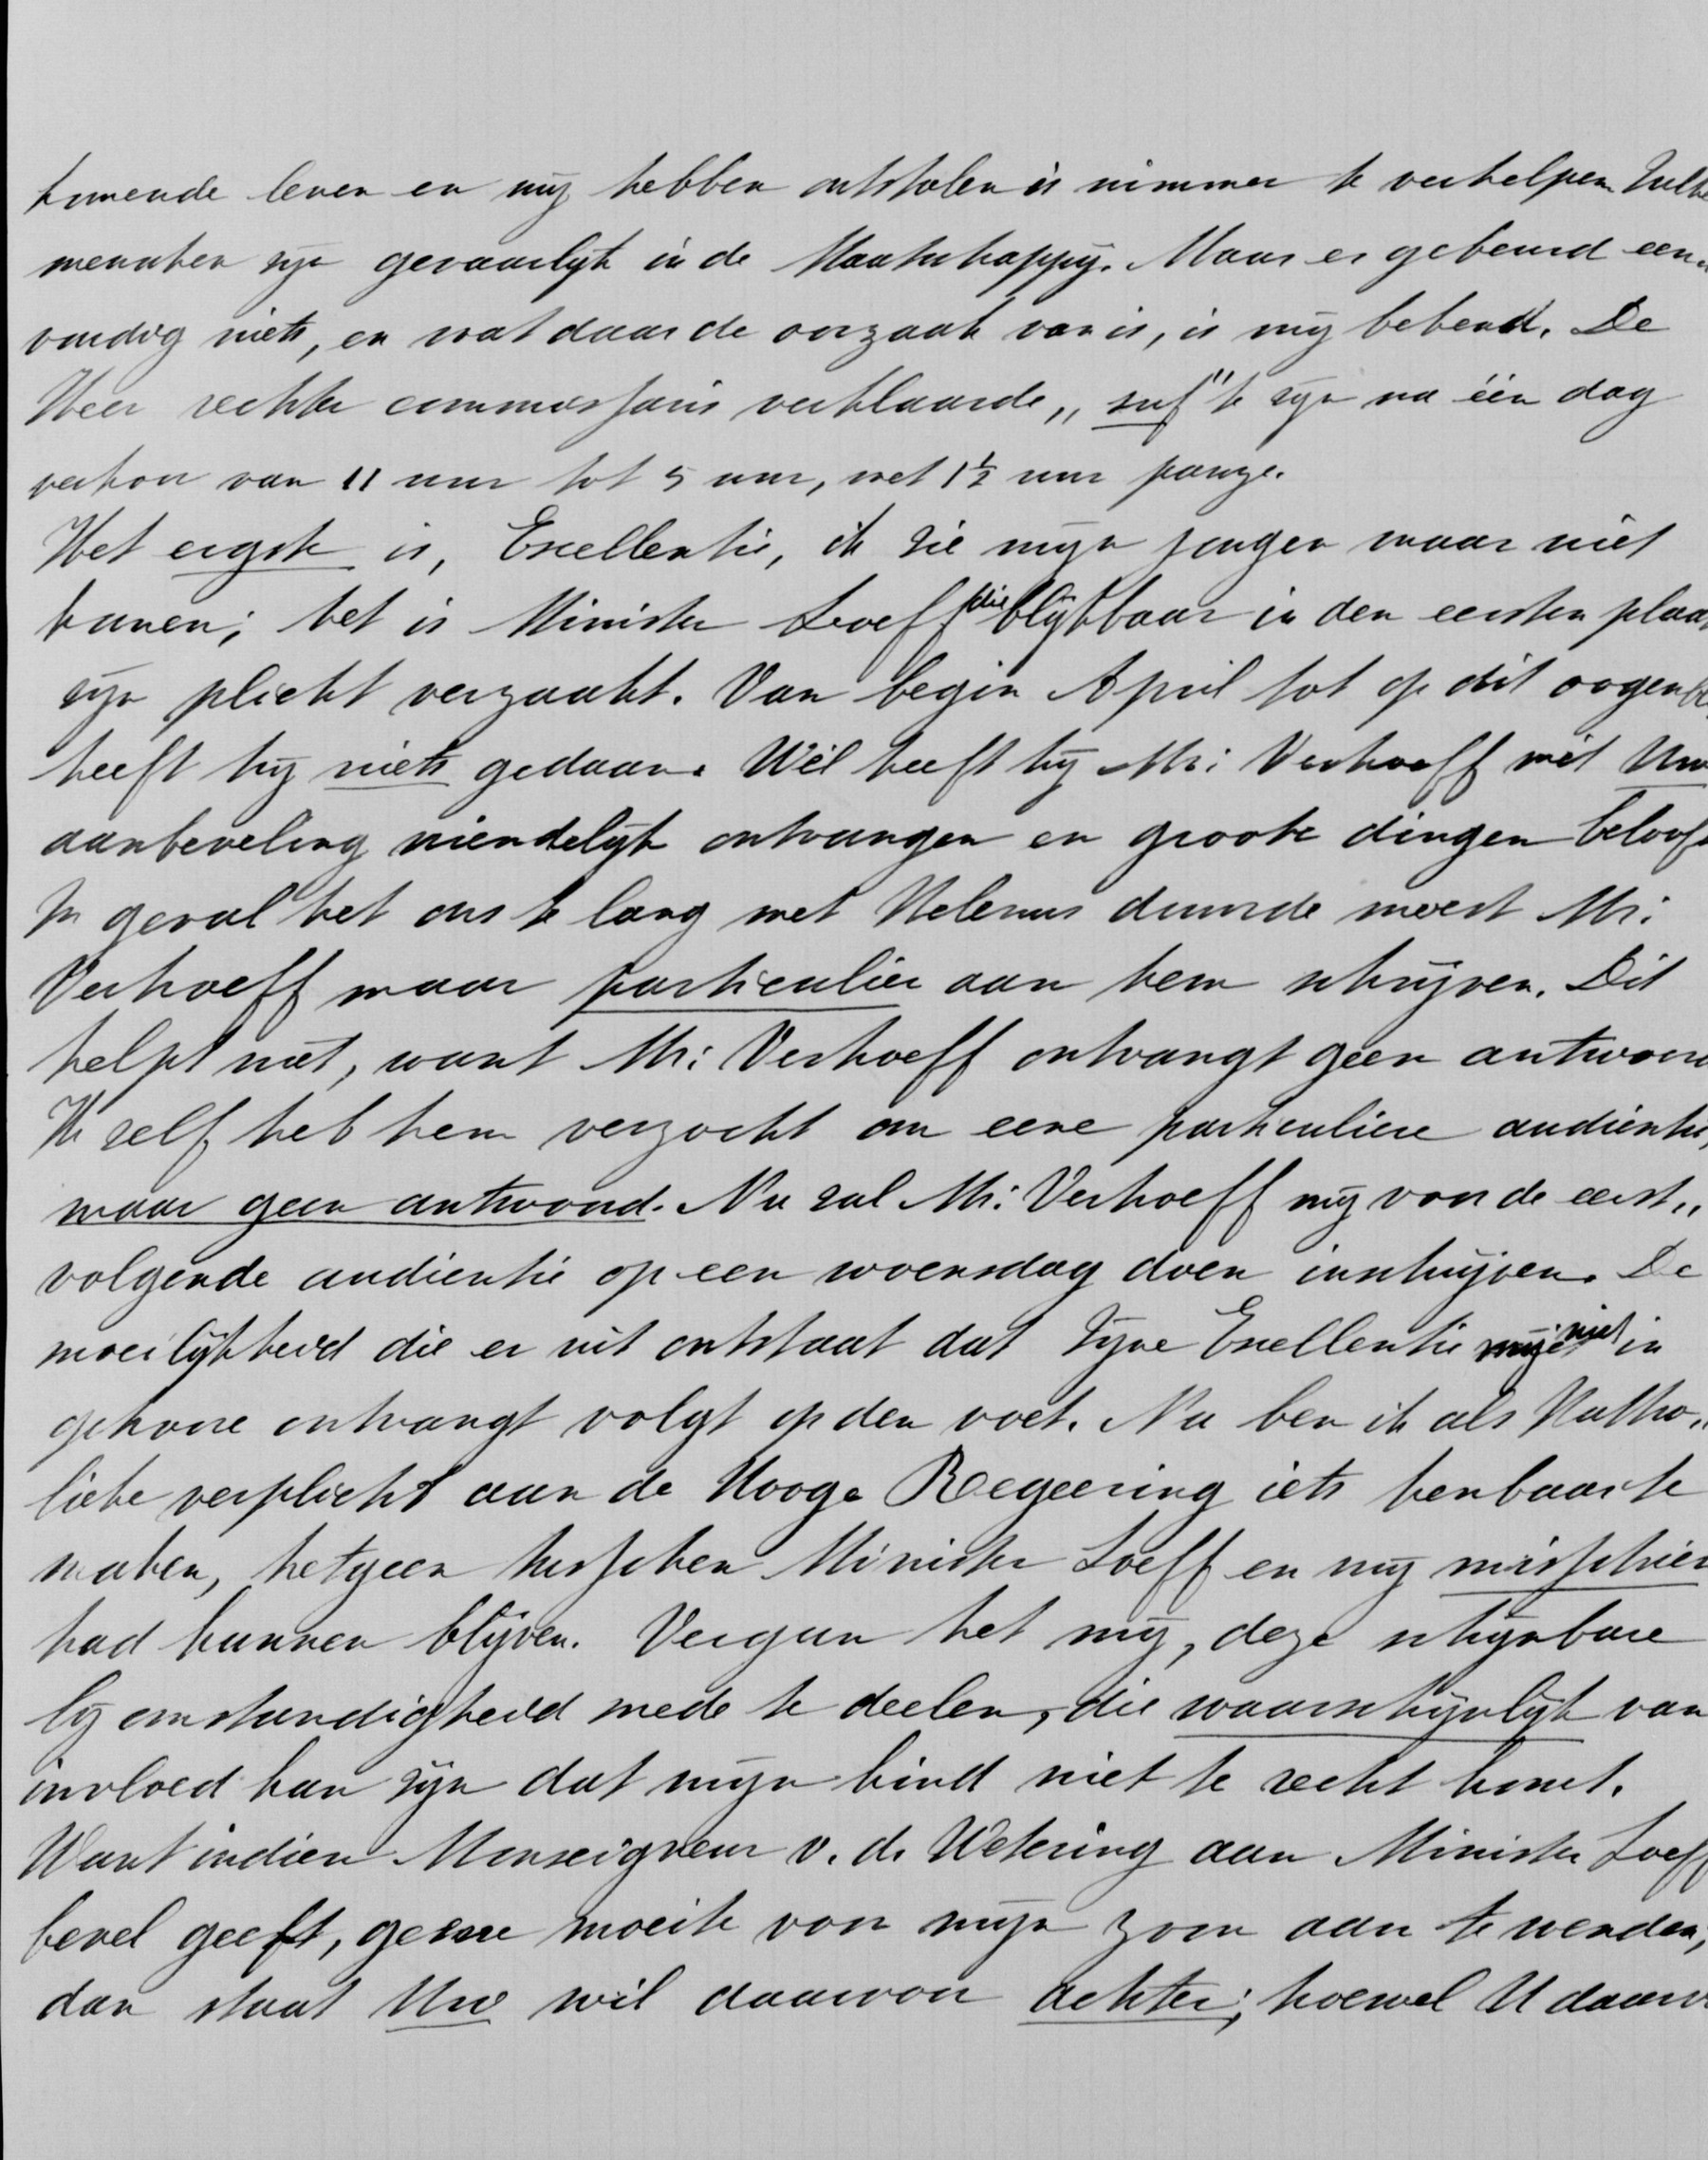 komende leven en mij hebben ontstolen is nimmer te verhelpen. Zulke
menschen zijn gevaarlijk in de Maatschappij. Maar er gebeurd een„
voudig niets, en wat daar de oorzaak van is, is mij bekend. De
Heer rechter commissaris verklaarde „suf" te zijn na één dag
verhoor van 11 uur tot 5 uur, met 1½ uur pauze.
Het ergste is, Excellentie, ik zie mijn jongen maar niet
komen; het is Minister Loeff die blijkbaar in den eersten plaats
zijn plicht verzaakt. Van begin April tot op dit oogenbl
heeft hij niets gedaan. Wèl heeft hij Mr: Verhoeff met Uw
aanbeveling vriendelijk ontvangen en groote dingen beloofd
In geval het ons te lang met Helenus duurde moest Mr:
Verhoeff maar particulier aan hem schrijven. Dit
helpt niet, want Mr: Verhoeff ontvangt geen antwoord
Ik zelf heb hem verzocht om eene particuliere audientie,
maar geen antwoord. Nu zal Mr: Verhoeff mij voor de eerst„
volgende audientie op een woensdag doen inschrijven. De
moeilijkheid die er uit ontstaat dat Zijne Excellentie mij niet in
gehoore ontvangt volgt op den voet. Nu ben ik als Katho„
lieke verplicht aan de Hooge Regeering iets kenbaar te
maken, hetgeen tusschen Minister Loeff en mij misschien
had kunnen blijven. Vergun het mij, deze schijnbare
bij omstandigheid mede te deelen, die waarschijnlijk van
invloed kan zijn dat mijn kind niet te recht komt.
Want indien Monseigneur v. de Wetering aan Minister Loeff
bevel geeft, geene moeite voor mijn zoon aan te wenden,
dan staat Uw wil daarvoor achter; hoewel U daarv